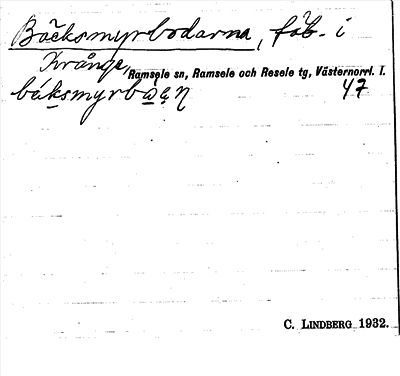 Bäcksmyrbodarna, fäb. i
Krånge, Ramsele sn, Ramsele och Resele tg, Västernorrl. l.
47
C. LINDBERG 1932.